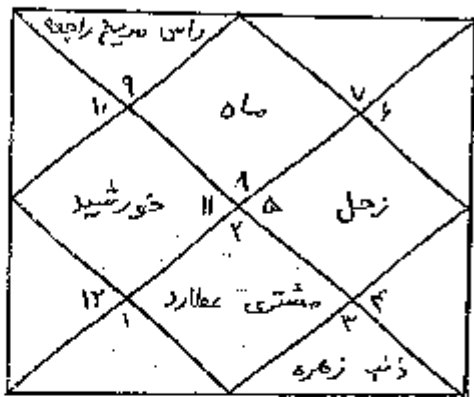 راس مریخ راجعه
۹
۷
۱۰
ماه
۶
۸
خورشید
۱۱
۵
زحل
۲
۱۲
مشتری عطارد
۴
۱
۳
ذنب زهره